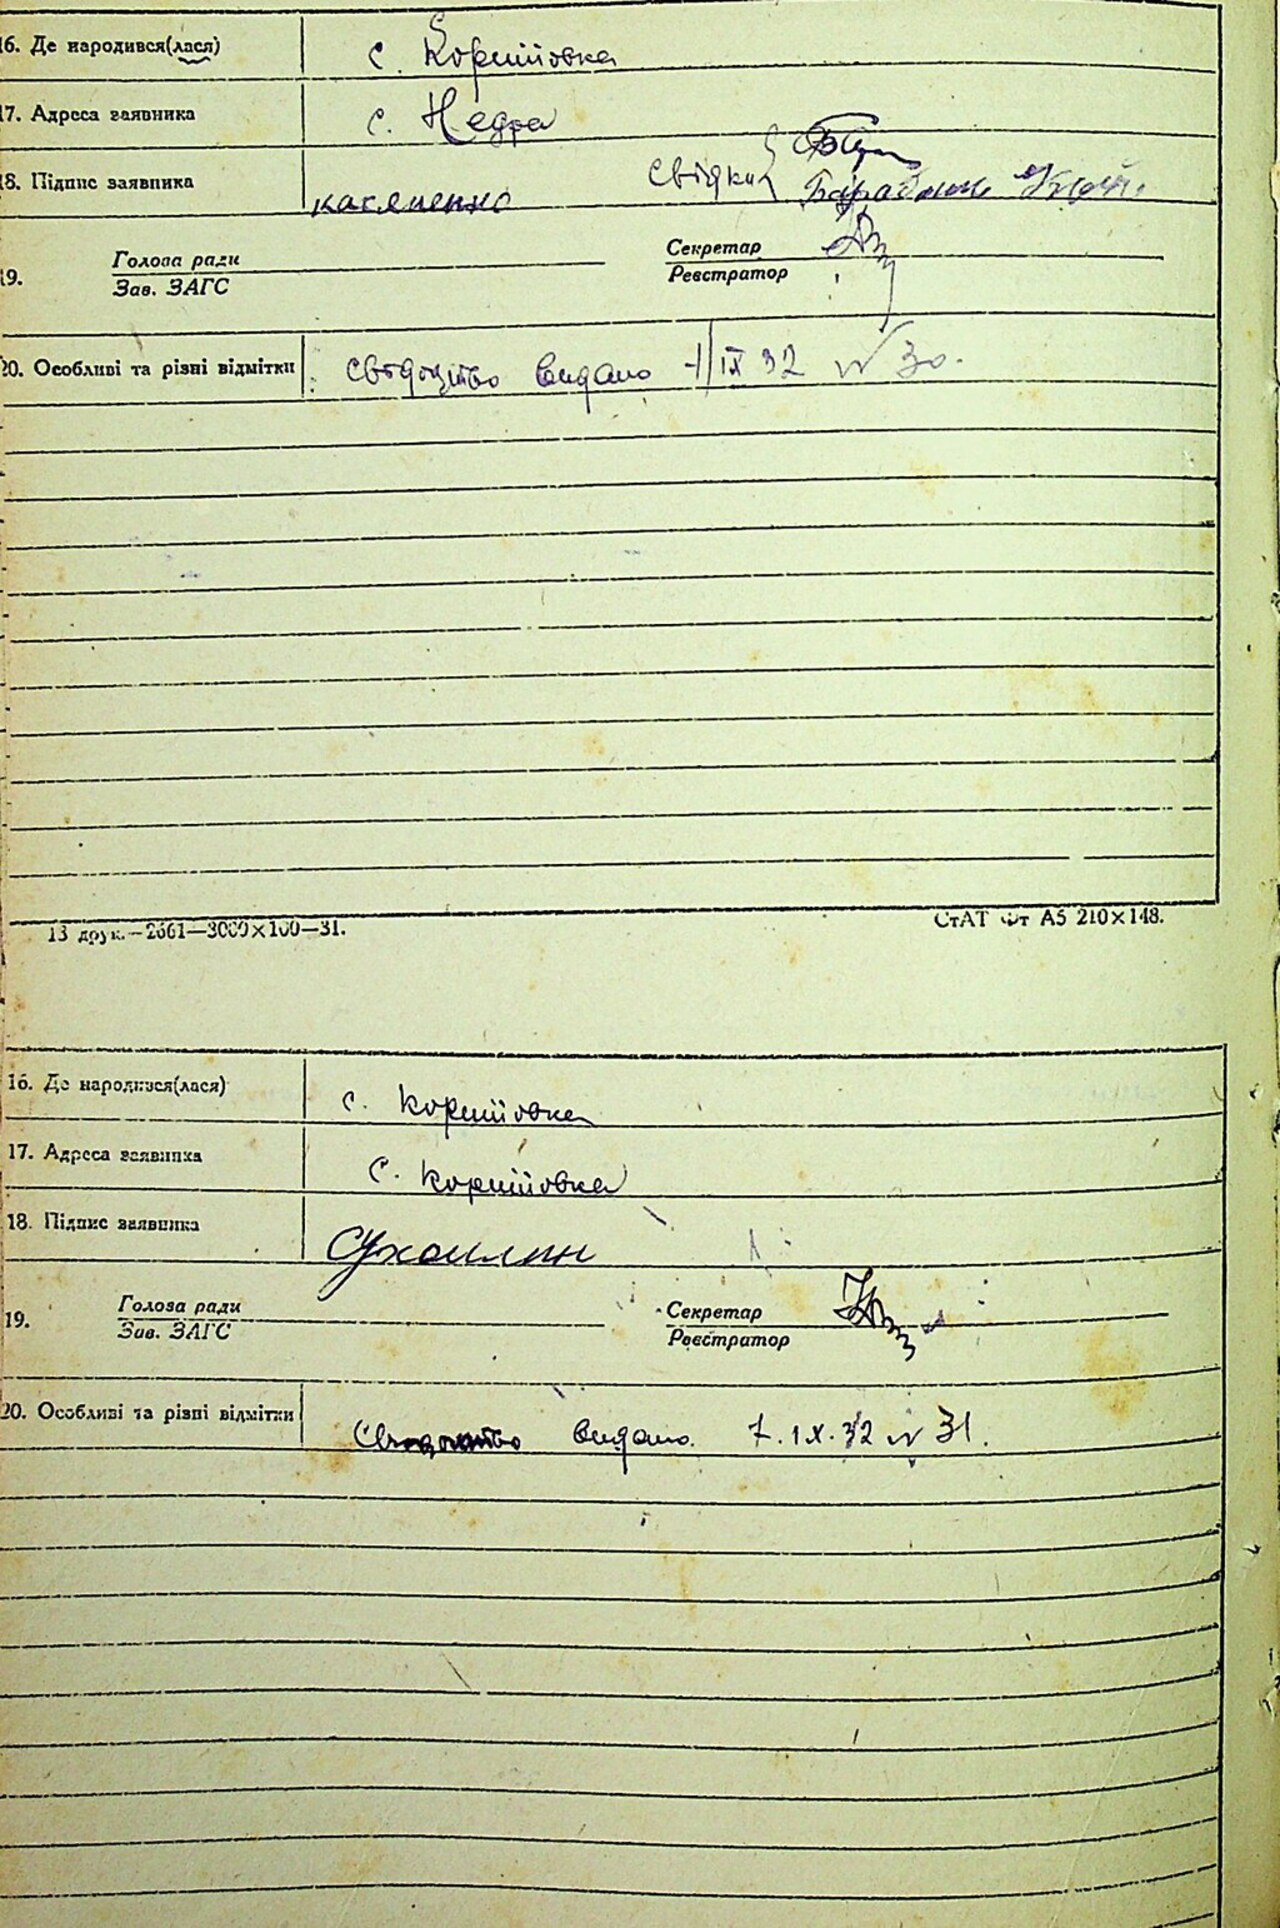 16. Де народився(лася) с. Коритовка
17. Адреса заявника с. Недра
18. Підпис заявника касяненко свідки
19. Голова ради Секретар
Зав. ЗАГС Реєстратор
20. Особливі та різні відмітки свідоцтво видано 1/IX 32 № 30.
13 друк.—2661—3000×100—31. СтАТ Фт А5 210×148.
16. Де народився(лася) с. Коритовка
17. Адреса заявника с. Коритовка
18. Підпис заявника
19. Голова ради Секретар
Зав. ЗАГС Реєстратор
20. Особливі та різні відмітки Свідоцтво видано. 7. IX. 32 № 31.